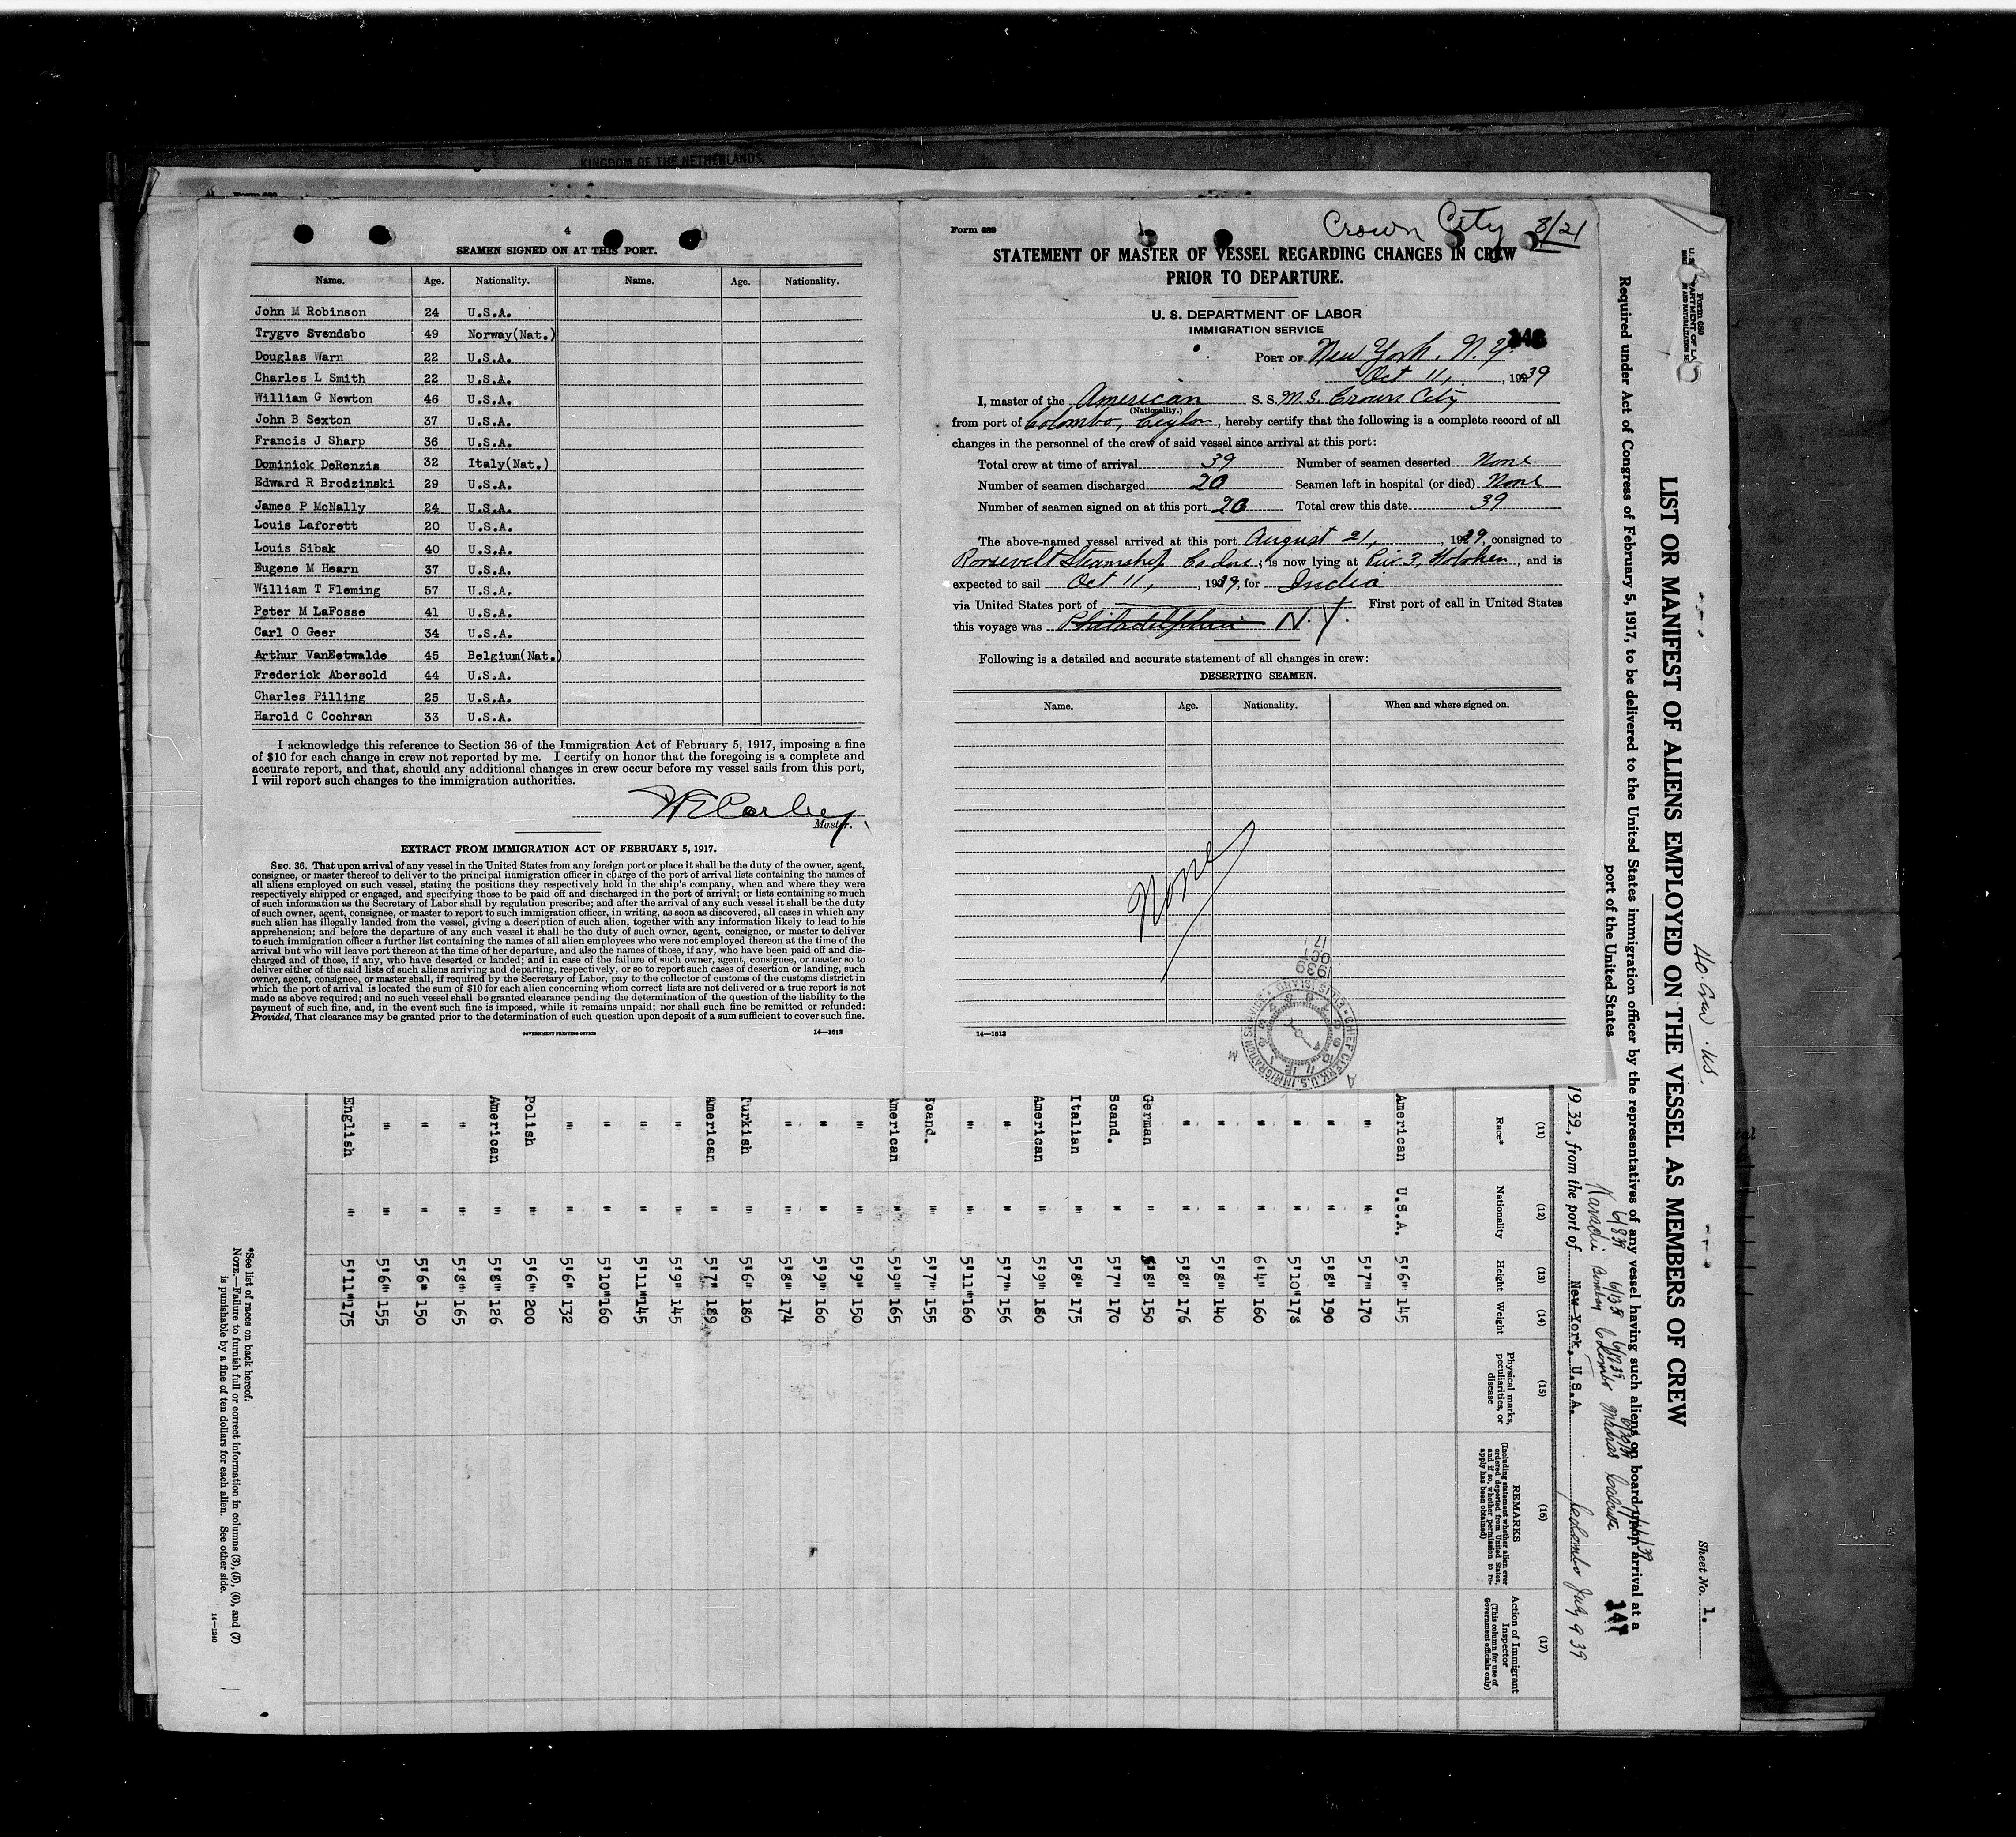 KINGDOM OF THE NETHERLANDS.
4
SEAMEN SIGNED ON AT THIS PORT.
Name. Age. Nationality. Name. Age. Nationality.
John M Robinson 24 U.S.A.
Trygve Svendsbo 49 Norway(Nat.)
Douglas Warn 22 U.S.A.
Charles L Smith 22 U.S.A.
William G Newton 46 U.S.A.
John B Sexton 37 U.S.A.
Francis J Sharp 36 U.S.A.
Dominick DeRenzis 32 Italy(Nat.)
Edward R Brodzinski 29 U.S.A.
James P McNally 24 U.S.A.
Louis Laforett 20 U.S.A.
Louis Sibak 40 U.S.A.
Eugene M Hearn 37 U.S.A.
William T Fleming 57 U.S.A.
Peter M LaFosse 41 U.S.A.
Carl O Geer 34 U.S.A.
Arthur VanEetwalde 45 Belgium(Nat.)
Frederick Abersold 44 U.S.A.
Charles Pilling 25 U.S.A.
Harold C Cochran 33 U.S.A.
I acknowledge this reference to Section 36 of the Immigration Act of February 5, 1917, imposing a fine
of $10 for each change in crew not reported by me. I certify on honor that the foregoing is a complete and
accurate report, and that, should any additional changes in crew occur before my vessel sails from this port,
I will report such changes to the immigration authorities.
Master.
EXTRACT FROM IMMIGRATION ACT OF FEBRUARY 5, 1917.
SEC. 36. That upon arrival of any vessel in the United States from any foreign port or place it shall be the duty of the owner, agent,
consignee, or master thereof to deliver to the principal immigration officer in charge of the port of arrival lists containing the names of
all aliens employed on such vessel, stating the positions they respectively hold in the ship's company, when and where they were
respectively shipped or engaged, and specifying those to be paid off and discharged in the port of arrival; or lists containing so much
of such information as the Secretary of Labor shall by regulation prescribe; and after the arrival of any such vessel it shall be the duty
of such owner, agent, consignee, or master to report to such immigration officer, in writing, as soon as discovered, all cases in which any
such alien has illegally landed from the vessel, giving a description of such alien, together with any information likely to lead to his
apprehension; and before the departure of any such vessel it shall be the duty of such owner, agent, consignee, or master to deliver
to such immigration officer a further list containing the names of all alien employees who were not employed thereon at the time of the
arrival but who will leave port thereon at the time of her departure, and also the names of those, if any, who have been paid off and dis-
charged and of those, if any, who have deserted or landed; and in case of the failure of such owner, agent, consignee, or master so to
deliver either of the said lists of such aliens arriving and departing, respectively, or so to report such cases of desertion or landing, such
owner, agent, consignee, or master shall, if required by the Secretary of Labor, pay to the collector of customs of the customs district in
which the port of arrival is located the sum of $10 for each alien concerning whom correct lists are not delivered or a true report is not
made as above required; and no such vessel shall be granted clearance pending the determination of the question of the liability to the
payment of such fine, and, in the event such fine is imposed, while it remains unpaid; nor shall such fine be remitted or refunded:
Provided, That clearance may be granted prior to the determination of such question upon deposit of a sum sufficient to cover such fine.
GOVERNMENT PRINTING OFFICE 14—1613
Crown City 8/21
Form 689
STATEMENT OF MASTER OF VESSEL REGARDING CHANGES IN CREW
PRIOR TO DEPARTURE.
U. S. DEPARTMENT OF LABOR
IMMIGRATION SERVICE
PORT OF New York, N.Y. 148
Oct 11, 1939
I, master of the American S. S. M.S. Crown City
(Nationality.)
from port of Colombo, Ceylon, hereby certify that the following is a complete record of all
changes in the personnel of the crew of said vessel since arrival at this port:
Total crew at time of arrival 39 Number of seamen deserted None
Number of seamen discharged 20 Seamen left in hospital (or died) None
Number of seamen signed on at this port 20 Total crew this date 39
The above-named vessel arrived at this port August 21, 1939, consigned to
Roosevelt Steamship Co Inc, is now lying at Pier 3, Hoboken, and is
expected to sail Oct 11, 1939, for India
via United States port of First port of call in United States
this voyage was Philadelphia N.Y.
Following is a detailed and accurate statement of all changes in crew:
DESERTING SEAMEN.
Name. Age. Nationality. When and where signed on.
None
14—1613
1939 OCT 17
CHIEF CLERK, U.S. IMMIGRATION SERVICE ELLIS ISLAND
Form 680
Sheet No. 1.
LIST OR MANIFEST OF ALIENS EMPLOYED ON THE VESSEL AS MEMBERS OF CREW
Required under Act of Congress of February 5, 1917, to be delivered to the United States immigration officer by the representatives of any vessel having such aliens on board upon arrival at a
port of the United States
147
Karachi Bombay Colombo Madras Calcutta
from the port of New York, U.S.A. Colombo July 9 39
(11) (12) (13) (14) (15) (16) (17)
Race* Nationality Height Weight Physical marks, peculiarities, or disease
REMARKS
(Including statement whether alien ever ordered deported from United States, and if so, whether permission to reapply has been obtained)
Action of Immigrant Inspector
(This column for use of Government officials only)
American U.S.A. 5'6" 145
" " 5'7" 170
" " 5'8" 190
" " 5'10" 178
" " 6'4" 160
" " 5'8" 140
" " 5'8" 176
German " 5'8" 150
Scand. " 5'7" 170
Italian " 5'8" 175
American " 5'9" 180
" " 5'7" 156
" " 5'11" 160
Scand. " 5'7" 155
American " 5'9" 165
" " 5'9" 150
" " 5'9" 160
" " 5'8" 174
Turkish " 5'6" 180
American " 5'7" 189
" " 5'9" 145
" " 5'11" 145
" " 5'10" 160
" " 5'6" 132
Polish " 5'6" 200
American " 5'8" 126
" " 5'8" 165
" " 5'6" 150
" " 5'6" 155
English " 5'11" 175
*See list of races on back hereof.
NOTE.—Failure to furnish full or correct information in columns (3), (5), (6), and (7)
is punishable by a fine of ten dollars for each alien. See other side.
14—1240